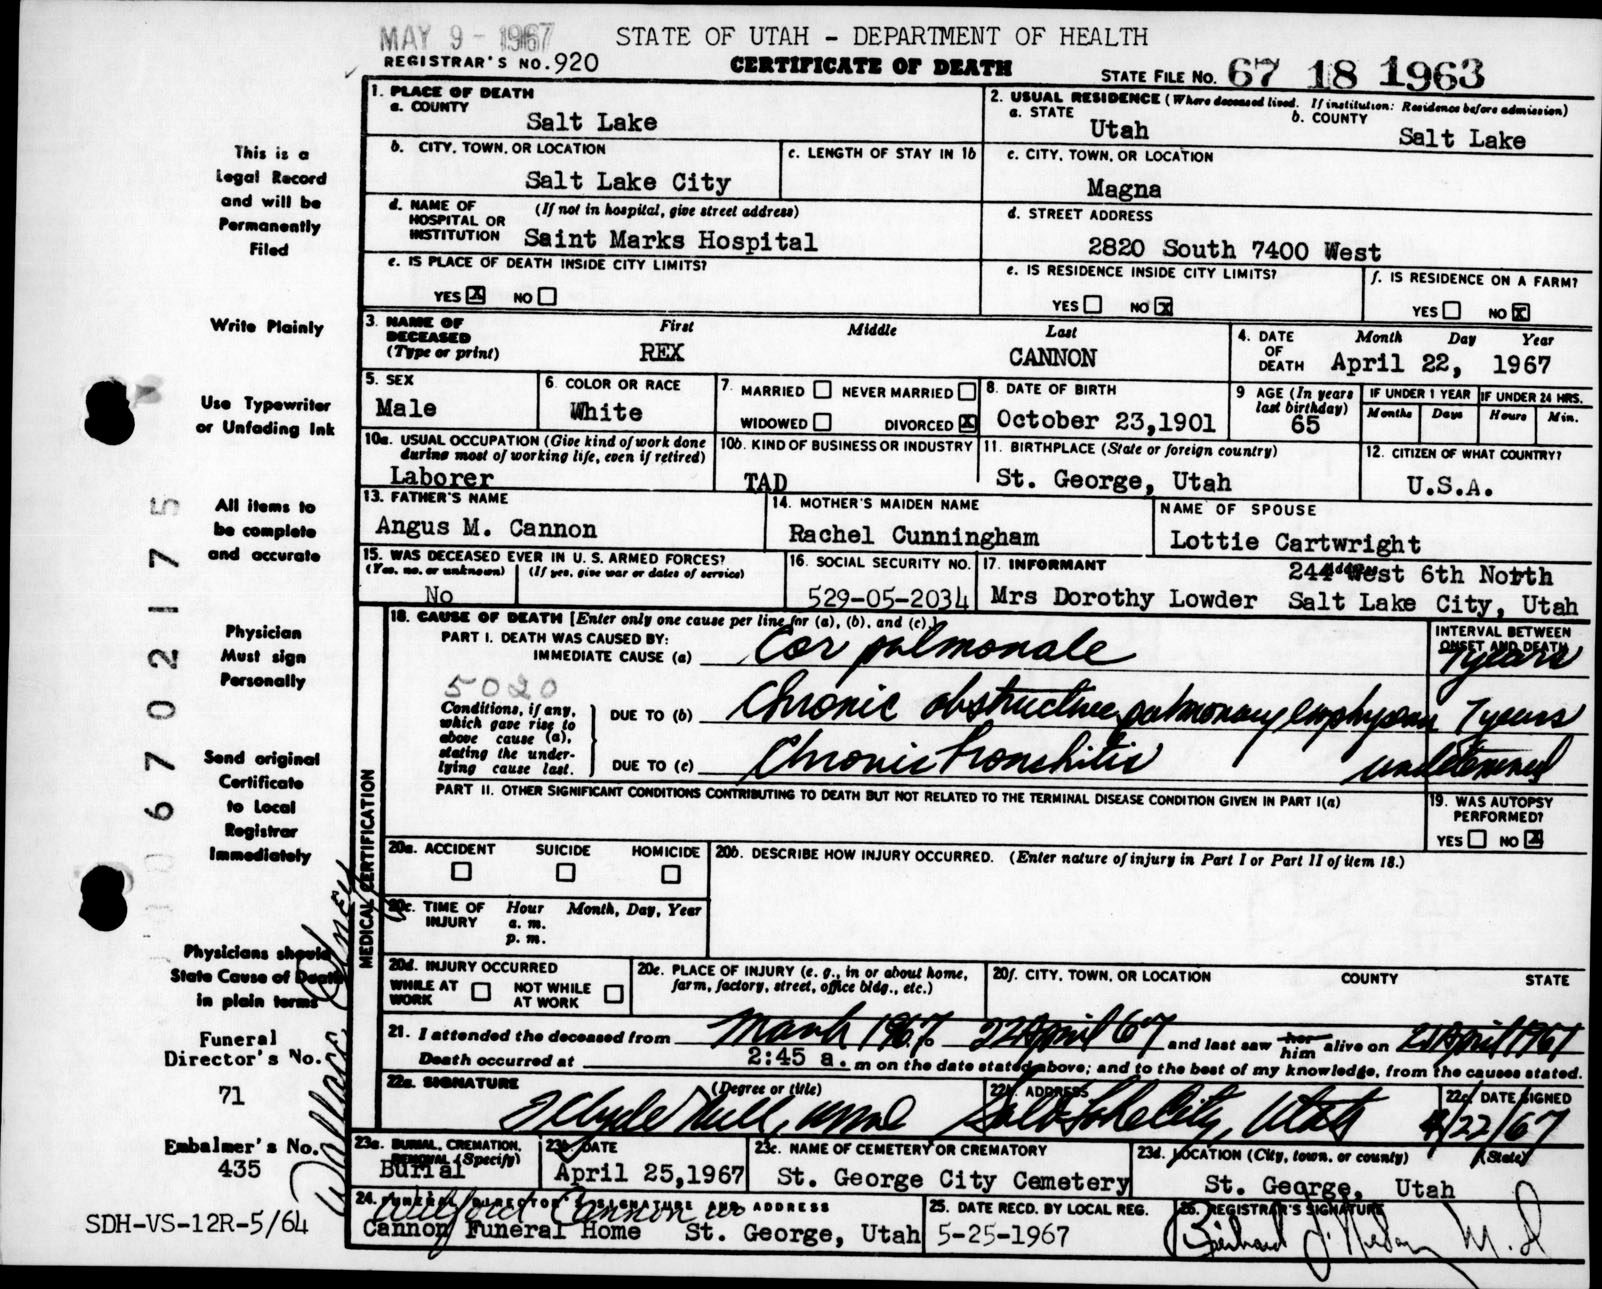 MAY 9 - 1967
STATE OF UTAH - DEPARTMENT OF HEALTH
REGISTRAR'S NO. 920
CERTIFICATE OF DEATH
STATE FILE NO. 67 18 1963
This is a
Legal Record
and will be
Permanently
Filed
Write Plainly
Use Typewriter
or Unfading Ink
All items to
be complete
and accurate
Physician
Must sign
Personally
Send original
Certificate
to Local
Registrar
Immediately
Physicians should
State Cause of Death
in plain terms
Funeral
Director's No.
71
Embalmer's No.
435
SDH-VS-12R-5/64
67021775
1. PLACE OF DEATH
a. COUNTY
Salt Lake
2. USUAL RESIDENCE (Where deceased lived. If institution: Residence before admission)
a. STATE
Utah
b. COUNTY
Salt Lake
b. CITY, TOWN, OR LOCATION
Salt Lake City
c. LENGTH OF STAY IN 1b
c. CITY, TOWN, OR LOCATION
Magna
d. NAME OF HOSPITAL OR INSTITUTION
(If not in hospital, give street address)
Saint Marks Hospital
d. STREET ADDRESS
2820 South 7400 West
e. IS PLACE OF DEATH INSIDE CITY LIMITS?
YES X NO
e. IS RESIDENCE INSIDE CITY LIMITS?
YES NO X
f. IS RESIDENCE ON A FARM?
YES NO X
3. NAME OF DECEASED
(Type or print)
First Middle Last
REX CANNON
4. DATE OF DEATH
Month Day Year
April 22, 1967
5. SEX
Male
6. COLOR OR RACE
White
7. MARRIED NEVER MARRIED
WIDOWED DIVORCED X
8. DATE OF BIRTH
October 23,1901
9 AGE (In years last birthday)
65
IF UNDER 1 YEAR
Months Days
IF UNDER 24 HRS.
Hours Min.
10a. USUAL OCCUPATION (Give kind of work done during most of working life, even if retired)
Laborer
10b. KIND OF BUSINESS OR INDUSTRY
TAD
11. BIRTHPLACE (State or foreign country)
St. George, Utah
12. CITIZEN OF WHAT COUNTRY?
U.S.A.
13. FATHER'S NAME
Angus M. Cannon
14. MOTHER'S MAIDEN NAME
Rachel Cunningham
NAME OF SPOUSE
Lottie Cartwright
15. WAS DECEASED EVER IN U. S. ARMED FORCES?
(Yes, no, or unknown) (If yes, give war or dates of service)
No
16. SOCIAL SECURITY NO.
529-05-2034
17. INFORMANT
Mrs Dorothy Lowder
244 West 6th North
Salt Lake City, Utah
MEDICAL CERTIFICATION
18. CAUSE OF DEATH [Enter only one cause per line for (a), (b), and (c).]
PART I. DEATH WAS CAUSED BY:
IMMEDIATE CAUSE (a) Cor pulmonale
INTERVAL BETWEEN ONSET AND DEATH
years
5020
Conditions, if any,
which gave rise to
above cause (a),
stating the under-
lying cause last.
DUE TO (b) Chronic obstructive pulmonary emphysem 7 years
DUE TO (c) Chronic bronchitis undetermined
PART II. OTHER SIGNIFICANT CONDITIONS CONTRIBUTING TO DEATH BUT NOT RELATED TO THE TERMINAL DISEASE CONDITION GIVEN IN PART I(a)
19. WAS AUTOPSY PERFORMED?
YES NO X
20a. ACCIDENT SUICIDE HOMICIDE
20b. DESCRIBE HOW INJURY OCCURRED. (Enter nature of injury in Part I or Part II of item 18.)
20c. TIME OF INJURY
Hour Month, Day, Year
a. m.
p. m.
20d. INJURY OCCURRED
WHILE AT WORK NOT WHILE AT WORK
20e. PLACE OF INJURY (e. g., in or about home, farm, factory, street, office bldg., etc.)
20f. CITY, TOWN, OR LOCATION COUNTY STATE
21. I attended the deceased from March 1967. 22 April 67 and last saw her him alive on 21 April 1967
Death occurred at 2:45 a. m on the date stated above; and to the best of my knowledge, from the causes stated.
22a. SIGNATURE
(Degree or title)
22b. ADDRESS
Salt Lake City, Utah
22c. DATE SIGNED
4/22/67
23a. BURIAL, CREMATION, REMOVAL (Specify)
Burial
23b. DATE
April 25,1967
23c. NAME OF CEMETERY OR CREMATORY
St. George City Cemetery
23d. LOCATION (City, town, or county) (State)
St. George, Utah
24. FUNERAL DIRECTOR'S SIGNATURE AND ADDRESS
Cannon Funeral Home St. George, Utah
25. DATE RECD. BY LOCAL REG.
5-25-1967
26. REGISTRAR'S SIGNATURE